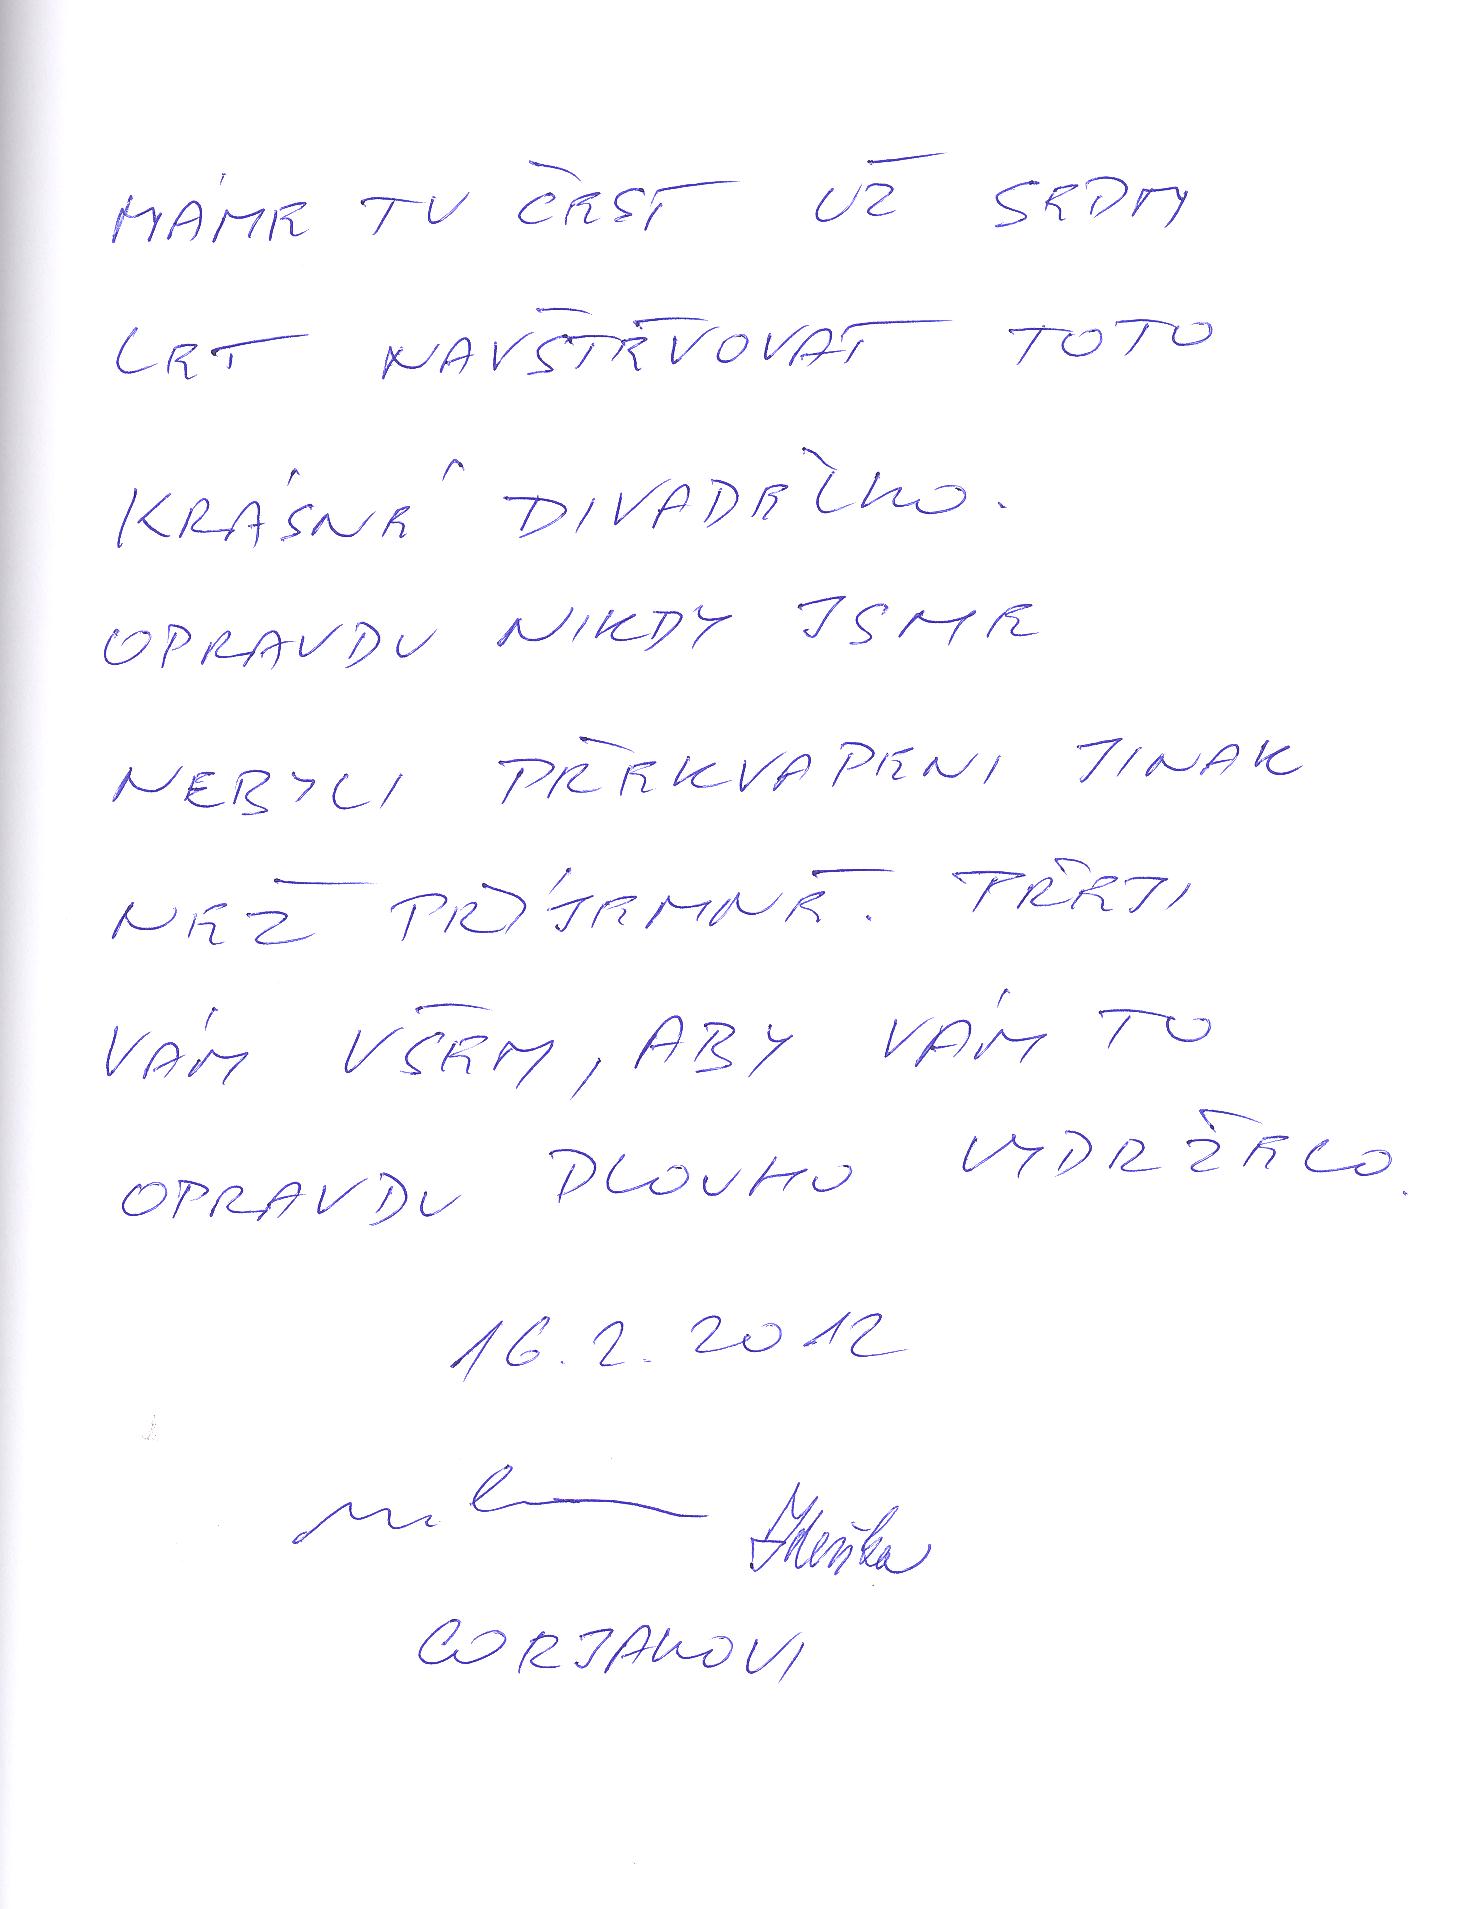 MÁME TU ČEST UŽ SEDM
LET NAVŠTĚVOVAT TOTO
KRÁSNÉ DIVADÉLKO.
OPRAVDU NIKDY JSME
NEBYLI PŘEKVAPENI JINAK
NEŽ PŘÍJEMNĚ. PŘEJI
VÁM VŠEM, ABY VÁM TO
OPRAVDU DLOUHO VYDRŽELO.
16.2.2012
Zdeňka